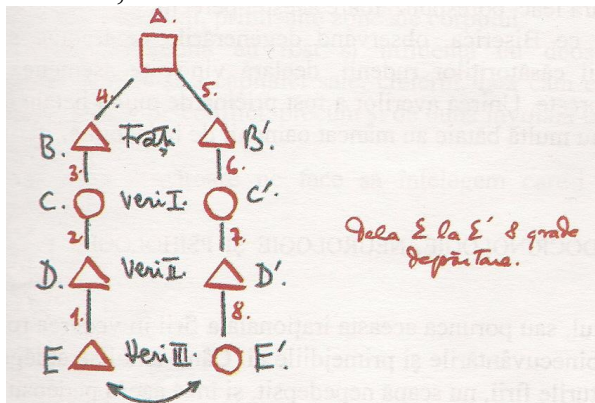 A.
4. 5.
B. Frați B'.
3. 6
C. Veri I. C'.
2. 7
D. Veri II. D'
1. 8.
E Veri III. E'
Dela E la E' 8 grade
depărtare.